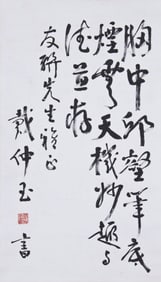 胸中邱壑筆底
煙雲天機妙趣與
法並存
友聯先生雅正
戴仲玉
書